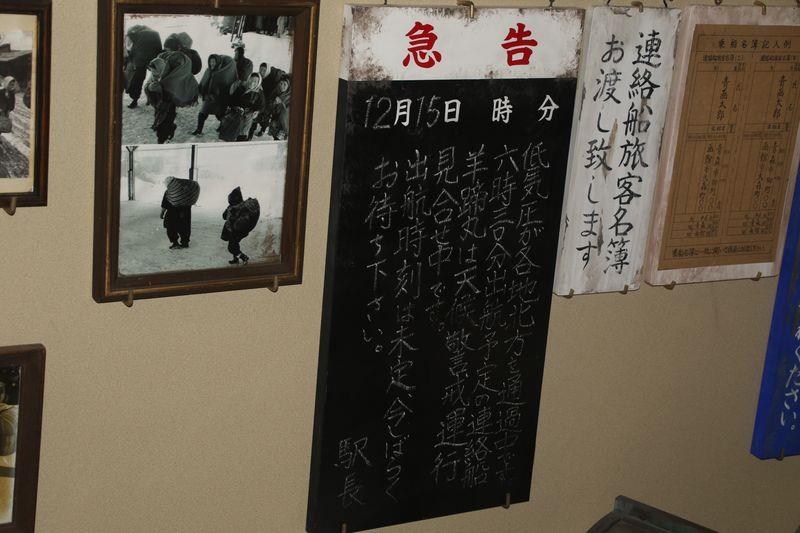 急告
12月15日 時 分
低気圧が各地北方を通過中です
六時三〇分出航予定の連絡船
羊蹄丸は天候警戒運行
見合せ中です。
出航時刻は未定、今しばらく
お待ち下さい。
駅長
連絡船旅客名簿
お渡し致します
乗船名簿記入例
青函太郎
ください。